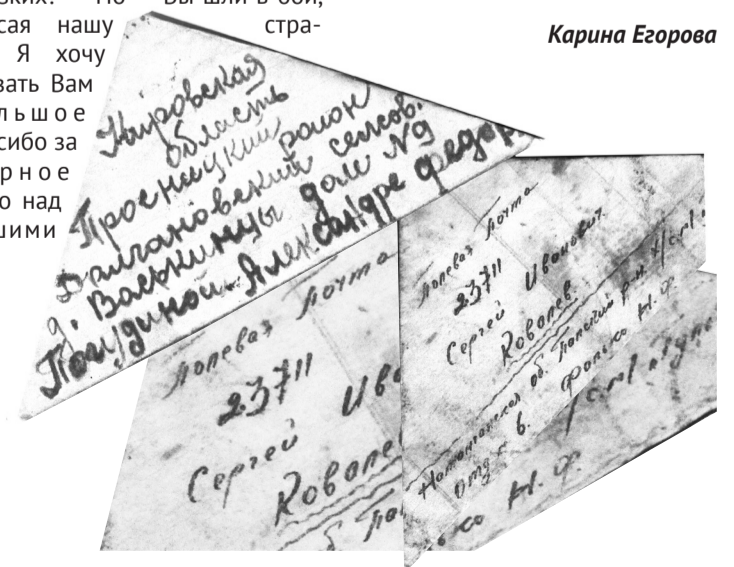 Вы шли в бой,
сая нашу стра-
Я хочу
зать Вам
льшое
сибо за
рное
о над
шими
Карина Егорова
Кировская
область
Просницкий район
Долгановский сельсов.
д. Васькинцы дом №9
Погудиной Александре Федор
Полевая почта
23711
Сергей Иванович
Ковалев
Наманганская об. Папский р-н
отд-к в. Фанько Н. Ф.
Полевая почта
23711
Сергей Ива
Ковале
ко Н. Ф.